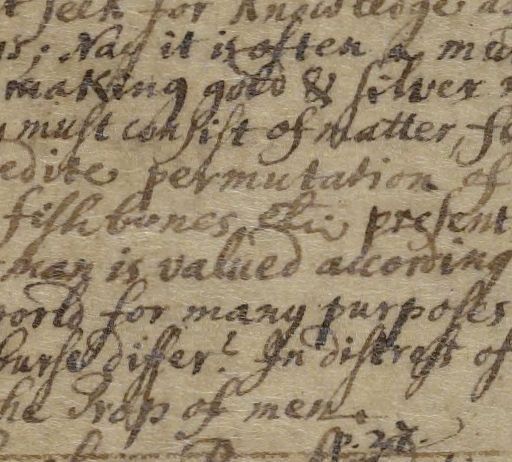 seek for Knowledge
Nay it is often a
making gold & silver
must consist of matter,
edite permutation of
fish bones, etc present
man is valued according
world for many purposes
purse differt. In distress of
he Trap of men
p. 22.